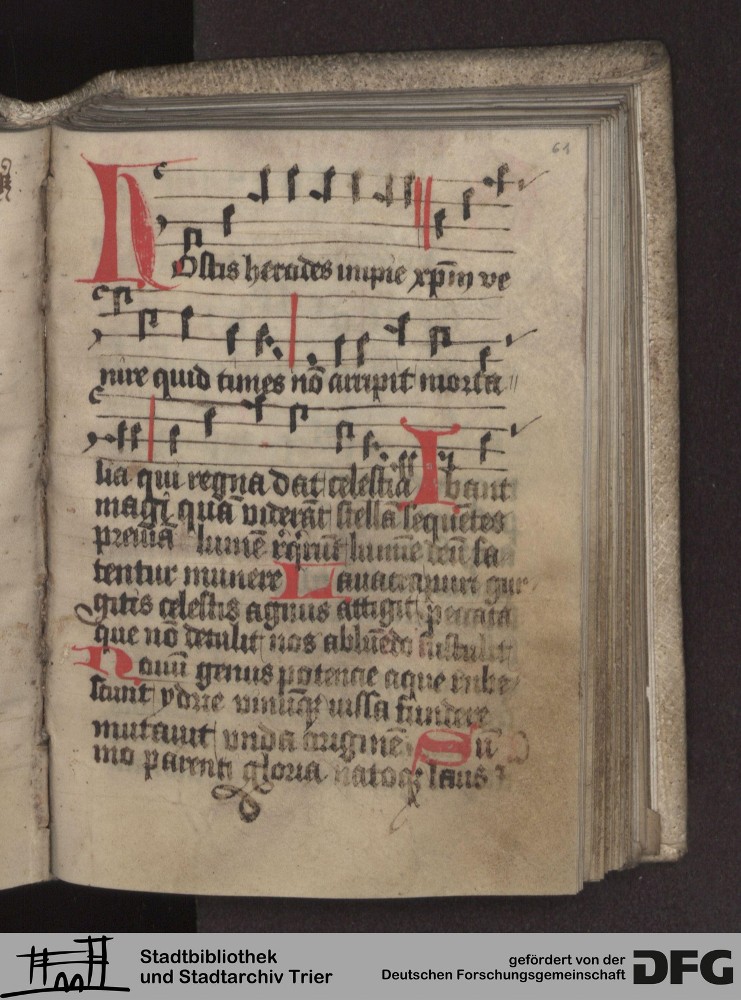 61
Hostis herodes impie xp̄m ve
nire quid times nō arripit morta
lia qui regna dat celestia Ibant
magi quā viderāt stellā sequētes
previā lumē req̄rūt lumīe deū fa
tentur munere Lavacra puri gur
gitis celestis agnus attigit peccata
que nō detulit nos abluēdo sustulit
Novū genus potencie aque rube
scunt ydrie vinūq̄ iussa fundere
mutavit unda originē Sū
mo parenti gloria natoq̄ laus
Stadtbibliothek
und Stadtarchiv Trier
gefördert von der
Deutschen Forschungsgemeinschaft
DFG